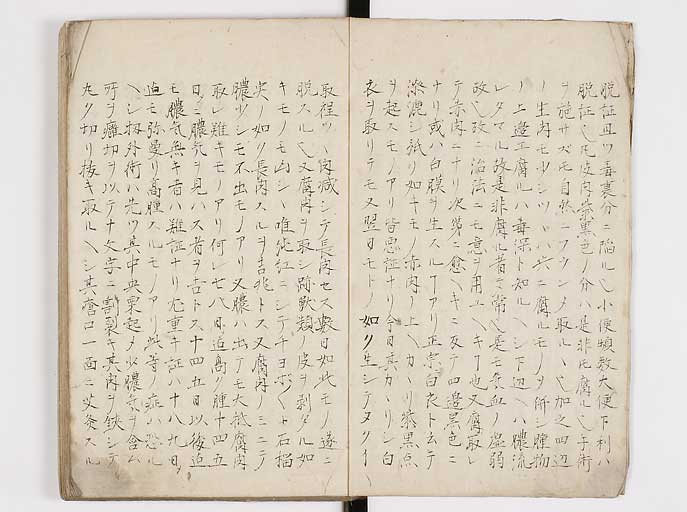 脱証且ツ毒裏分ニ陥ル〵小便頻数大便下利ハ
脱証〵凡皮肉紫黒色ノ分ハ是非氏腐ル〵手術
ヲ施サズモ自然ニウウンメ取ル〵〵加之四辺
ノ生肉モ少シツヽハ共ニ腐ルモノヲ所シ腫物
ノ上辺エ腐ルハ毒深ト知ル〵シ下辺〵ハ膿流
レタマル故是非腐ル者常〵是モ気血ノ虚弱
故〵故ニ治法ニモ意ヲ用エ〵キ也又腐取レ
テ赤肉ニナリ次第ニ愈〵キニ反テ四邊黒色ニ
ナリ或ハ白膜ヲ生スルアリ正宗白衣ト云テ
ノ如キモノ赤肉ノ上〵カヽリ紫黒点
ヲ起スモノアリ皆悪証ナリ今日真カヽリシ白
衣ヲ取リテモ又翌日モトノ如ク生シテヌクイ〵
取程ツヽ肉減シテ長肉セス数日如此モノ遂ニ
脱スル〵又腐肉ヲ取シ跡獣類ノ皮ヲ剥タル如
キモノモ凶シヽ唯純紅ニシテ石榴
実ノ如ク長肉スルヲ吉兆トス又腐肉ノミニテ
膿少シモ不出モノアリ又膿ハ出テモ大抵腐肉
取レ難キモノアリ何レ七八日迠高ク腫十四五
日ニ膿気ヲ見ハス者ヲ吉トス十四五日以後迠
モ膿気無キ者ハ難証ナリ尤重キ証ハ十八九日
迠モ弥蔓リ高腫スルモノアリ此等ノ症ハ恐ル
〵シ扨外術ハ先ツ其中央粟起メ少膿気ヲ含ム
所ヲ癰切ヲ以テ十文字ニ割裂キ其肉ヲ鋏シテ
丸ク切リ抜キ取ル〵シ其瘡口一面ニ艾灸スル